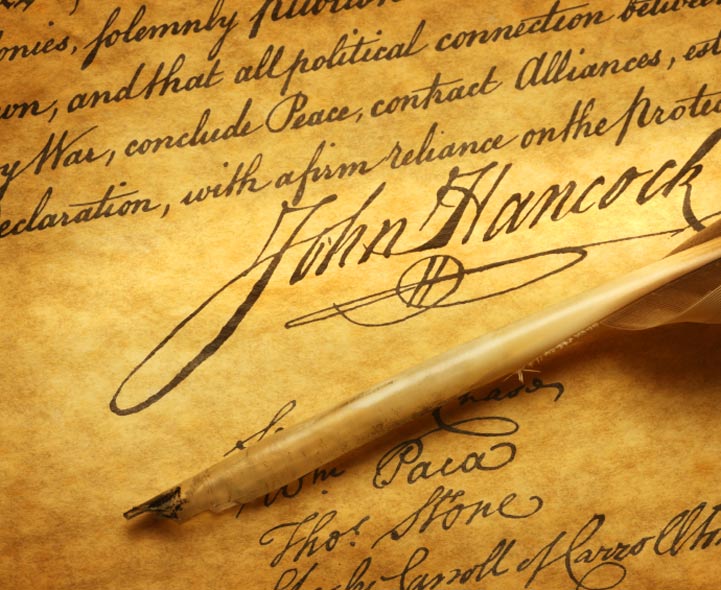 onies, solemnly publish
wn, and that all political connection betwee
y War, conclude Peace, contract Alliances, est
eclaration, with a firm reliance on the Protec
John Hancock
Wm. Paca
Thos. Stone
Carroll of Carrollton